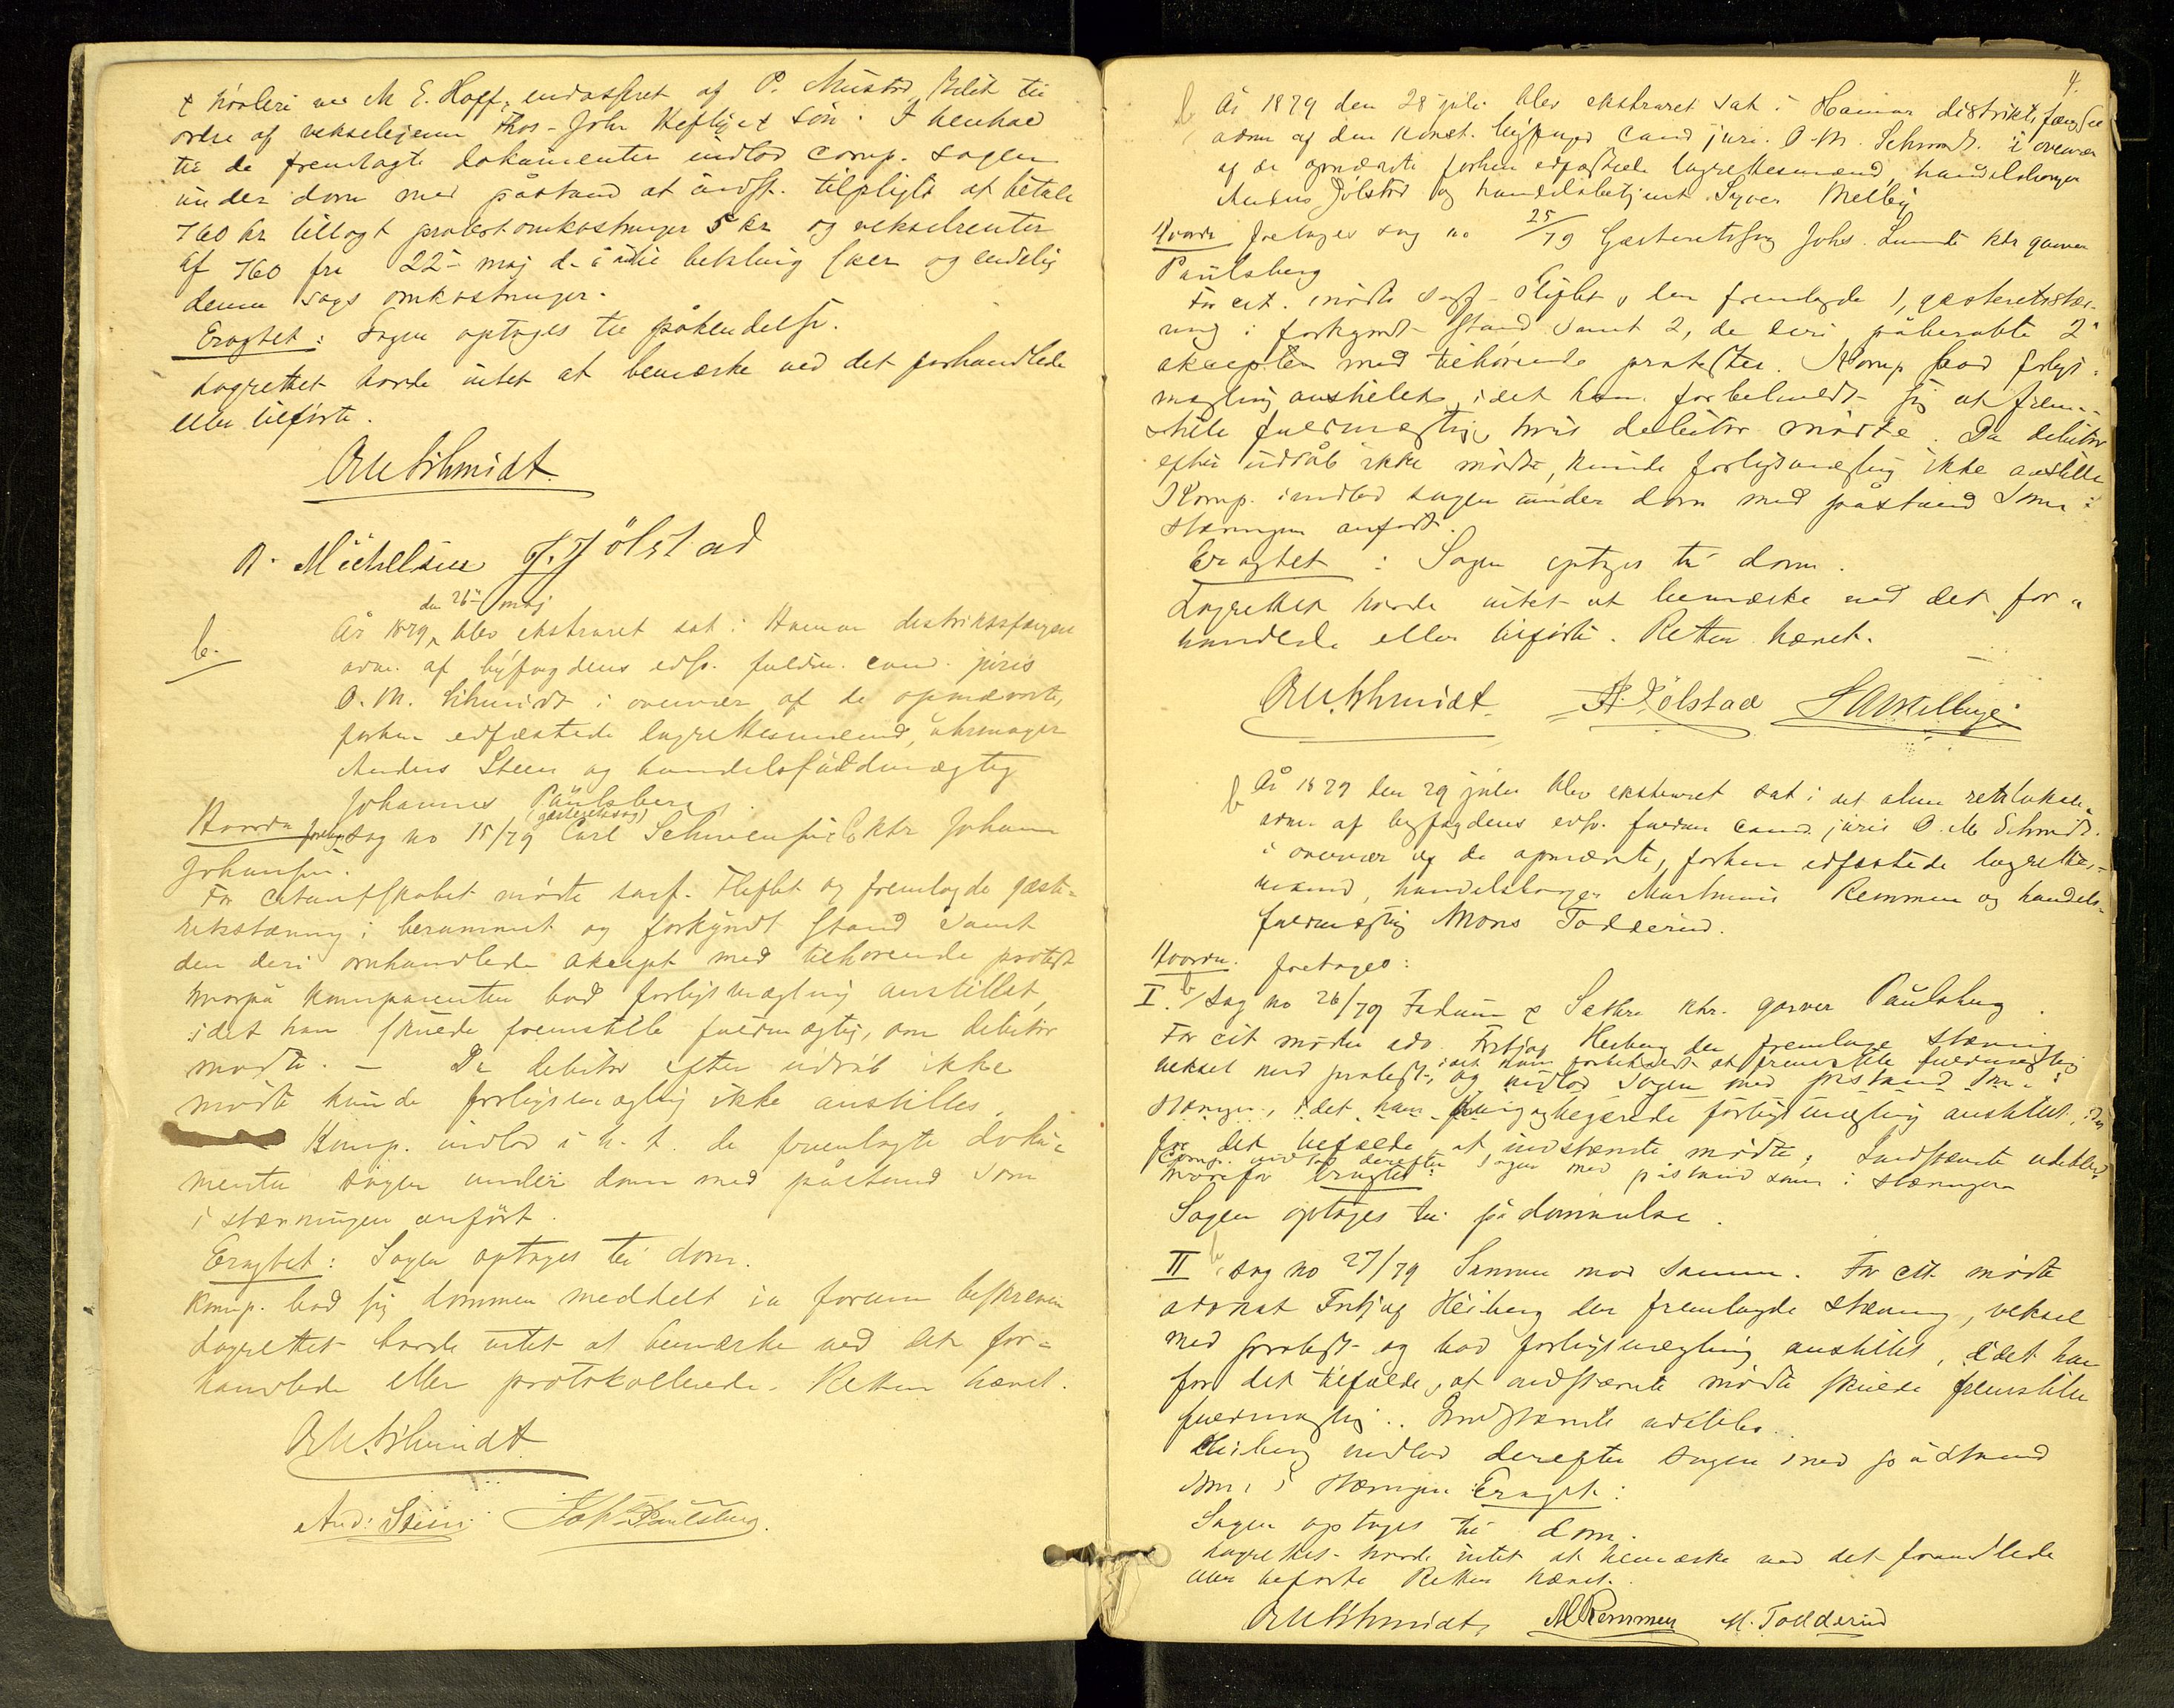 ordre af vekseleierne Thos. Joh. Heftye & Søn. I henhold
til de fremlagte dokumenter indlod comp. sagen
under dom med påstand at indst. tilpligtes at betale
760 kr tillagt protestomkostninger 5 kr og vekselrenter
af 760 fra 22 maj d. å. til betaling sker og endelig
denne sags omkostninger.
Eragtet: Sagen optages til påkendelse.
Lagrettet havde intet at bemærke ved det forhandlede
eller tilførte.
OMSchmidt
A. Michelsen J. Jölstad
den 26 maj
b.
År 1879 blev ekstraret sat i Hamar distriktsfængsel
adm. af byfogdens edsv. fuldm. cand. juris
O. M. Schmidt i overvær af de opnævnte,
forhen edfæstede lagrettesmænd, uhrmager
Anders Steen og handelsfuldmægtig
Johannes Paulsberg.
(gæsteretssag)
Hvorda foretoges sag no 15/79 Carl Schwensen ktr Johan
Johansen.
For citantskabet mødte sagf. Heflet og fremlagde gæste-
retsstævning i berammet og forkyndt stand samt
den deri omhandlede aksept med tilhørende protest
hvorpå komparenten bad forligsmægling anstillet,
idet han skulde fremstille fuldmægtig, om debitor
mødte. – Da debitor efter udråb ikke
mødte kunde forligsmægling ikke anstilles.
Komp. indlod i h. t. de fremlagte doku-
menter sagen under dom med påstand som
i stævningen anført.
Eragtet: Sagen optages til dom.
Komp. bad sig dommen meddelt in forma beskreven
Lagrettet havde intet at bemærke ved det for-
handlede eller protokollerede. Retten hævet.
OMSchmidt
And: Steen Joh Paulsberg.
4.
b År 1879 den 28 juli blev ekstraret sat i Hamar distriktsfængsel
adm af den konst. byfoged cand juris O. M. Schmidt i overvær
af de opnævnte forhen edfæstede lagrettesmænd, handelsborger
Jølstad og handelsbetjent Melby
Hvorda foretoges sag no 25/79 Gæsteretssag Johs. Lunde ktr garver
Paulsberg
For cit. mødte sagf. der fremlagde 1, gæsteretsstæv-
ning i forkyndt stand samt 2, de deri påberabte 2
aksepter med tilhørende protester. Komp bad forligs-
mægling anstillet, idet han forbeholdt sig at frem-
stille fuldmægtig, hvis debitor mødte. Da debitor
efter udråb ikke mødte, kunde forligsmægling ikke anstilles
Komp. indlod sagen under dom med påstand som i
stævningen anført.
Eragtet: Sagen optages til dom.
Lagrettet havde intet at bemærke ved det for-
handlede eller tilførte. Retten hævet.
OMSchmidt Jølstad
b År 1879 den 29 juli blev ekstraret sat i det alm. retslokale
adm. af byfogdens edsv. fuldm cand. juris O. M. Schmidt
i overvær af de opnævnte, forhen edfæstede lagrettes-
mænd, handelsborger Martinus Remmen og handels-
fuldmægtig Mons Tadderud.
Hvorda foretoges:
I. b Sag no 26/79 & Sæther ktr. garver Paulsberg
For cit mødte adv. Heiberg der fremlagde stævning
veksel med protest, idet han forbeholdt at fremstille fuldmægtig
og indlod sagen med påstand som i
stævningen, idet han begjærede forligsmægling anstillet,
for det tilfælde at indstævnte mødte; Indstævnte udeblev.
Comp. indlod derefter sagen med påstand som i stævningen
hvorefter Eragtet:
Sagen optages til pådømmelse.
II b, sag no 27/79 Samme mod samme. For cit. mødte
advokat Heiberg der fremlagde stævning, veksel
med protest og bad forligsmægling anstillet, idet han
for det tilfælde, at indstævnte mødte skulde fremstille
fuldmægtig. Indstævnte udeblev.
Heiberg indlod derefter sagen med påstand
som i stævningen Eragtet:
Sagen optages til dom.
Lagrettet havde intet at bemærke ved det forhandlede
eller tilførte Retten hævet.
OMSchmidt MRemmen M. Tadderud